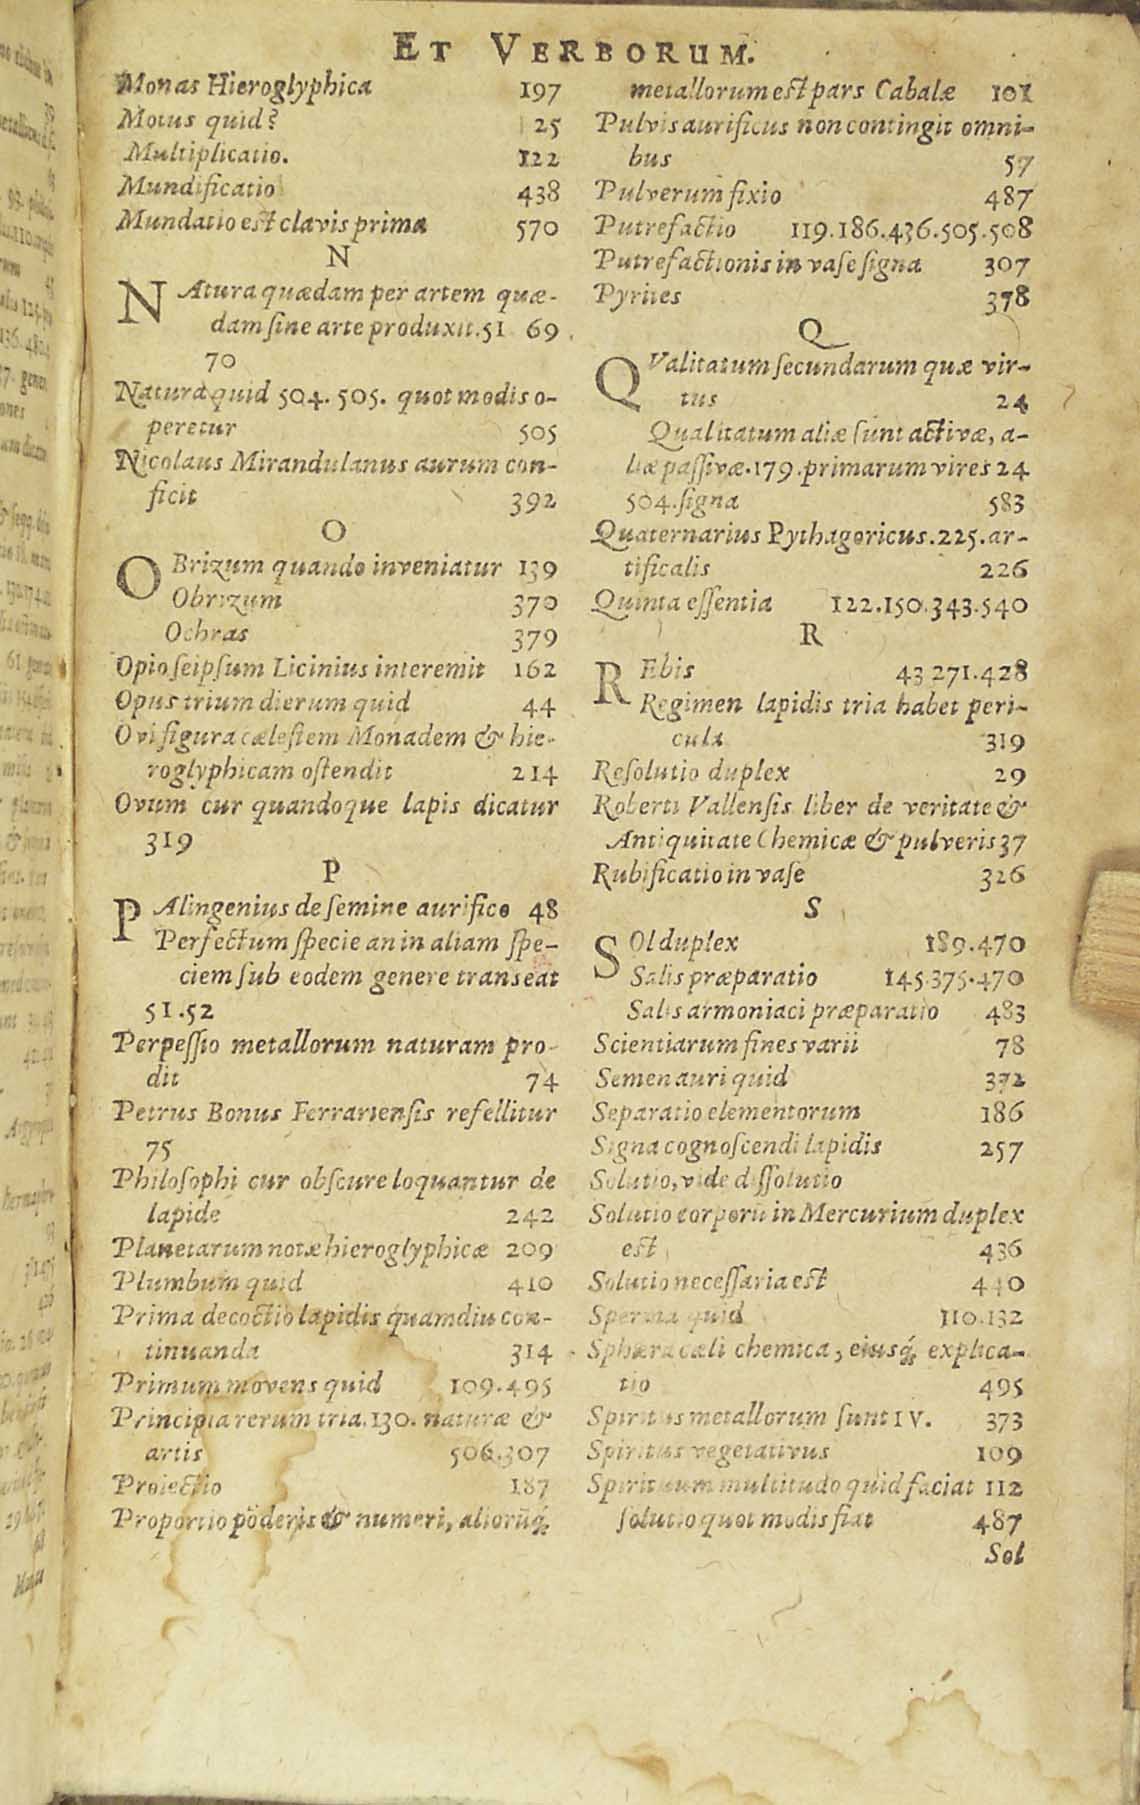 ET VERBORUM.
Monas Hieroglyphica 197
Motus quid? 25
Multiplicatio. 122
Mundificatio 438
Mundatio est clavis prima 570
N
NAtura quædam per artem quæ-
dam sine arte produxit. 51 69
70
Natura quid 504. 505. quot modis o-
peretur 505
Nicolaus Mirandulanus aurum con-
ficit 392
O
OBrizum quando inveniatur 139
Obrizum 370
Ochras 379
Opio seipsum Licinius interemit 162
Opus trium dierum quid 44
Ovi figura cælestem Monadem & hie-
roglyphicam ostendit 214
Ovum cur quandoque lapis dicatur
319
P
PAlingenius de semine aurifico 48
Perfectum specie an in aliam spe-
ciem sub eodem genere transeat
51.52
Perpessio metallorum naturam pro-
dit 74
Petrus Bonus Ferrariensis refellitur
75
Philosophi cur obscure loquantur de
lapide 242
Planetarum notæ hieroglyphicæ 209
Plumbum quid 410
Prima decoctio lapidis quamdiu con-
tinuanda 314
Primum movens quid 109.495
Principia rerum tria. 130. naturæ &
artis 506.307
Proiectio 187
Proportio põderis & numeri, aliorũq́;
metallorum est pars Cabalæ 101
Pulvis aurificus non contingit omni-
bus 57
Pulverum fixio 487
Putrefactio 119.186.436.505.508
Putrefactionis in vase signa 307
Pyrites 378
Q
QValitatum secundarum quæ vir-
tus 24
Qualitatum aliæ sunt activæ, a-
liæ passivæ. 179. primarum vires 24
504. signa 583
Quaternarius Pythagoricus. 225. ar-
tificalis 226
Quinta essentia 122.150.343.540
R
REbis 43 271.428
Regimen lapidis tria habet peri-
cula 319
Resolutio duplex 29
Roberti Vallensis liber de veritate &
Antiquitate Chemicæ & pulveris 37
Rubificatio in vase 326
S
SOl duplex 189.470
Salis præparatio 145.375.470
Salis armoniaci præparatio 483
Scientiarum fines varii 78
Semen auri quid 372
Separatio elementorum 186
Signa cognoscendi lapidis 257
Solutio, vide dissolutio
Solutio corporũ in Mercurium duplex
est 436
Solutio necessaria est 440
Sperma quid 110.132
Sphæra cæli chemica, eiusq́; explica-
tio 495
Spiritus metallorum sunt IV. 373
Spiritus vegetativus 109
Spirituum multitudo quid faciat 112
solutio quot modis fiat 487
Sol